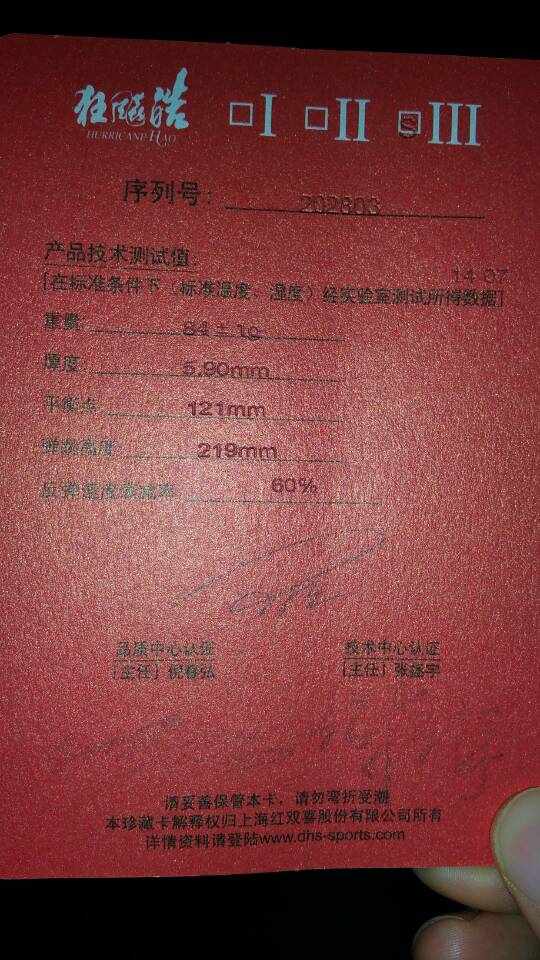 狂飚皓 □I □II □III
HURRICANE HAO
序列号： 202803
产品技术测试值:
14 07
[在标准条件下（标准温度、湿度）经实验室测试所得数据]
重量: 84±1g
厚度: 5.90mm
平衡点 121mm
弹跳高度 219mm
反弹速度衰减率 60%
品质中心认证 技术中心认证
[主任] 倪春弘 [主任] 张鑫宇
请妥善保管本卡，请勿弯折受潮
本珍藏卡解释权归上海红双喜股份有限公司所有
详情资料请登陆www.dhs-sports.com